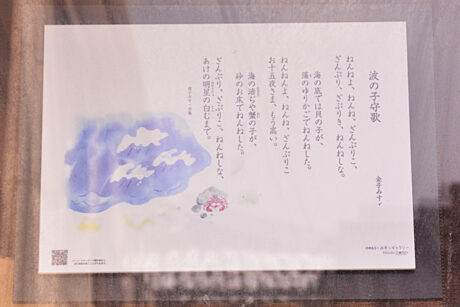 波の子守歌
金子みすゞ
ねんねよ、ねんね、ざんぶりこ、
ざんぶり、ざぶりき、ねんねしな。
海の底では貝の子が、
藻のゆりかごでねんねした。
ねんねんよ、ねんね、ざんぶりこ
お十五夜さま、もう高い。
海の渚ぢや蟹の子が、
砂のお床でねんねした。
ざんぶり、ざぶりこ、ねんねしな、
あけの明星の白むまで。